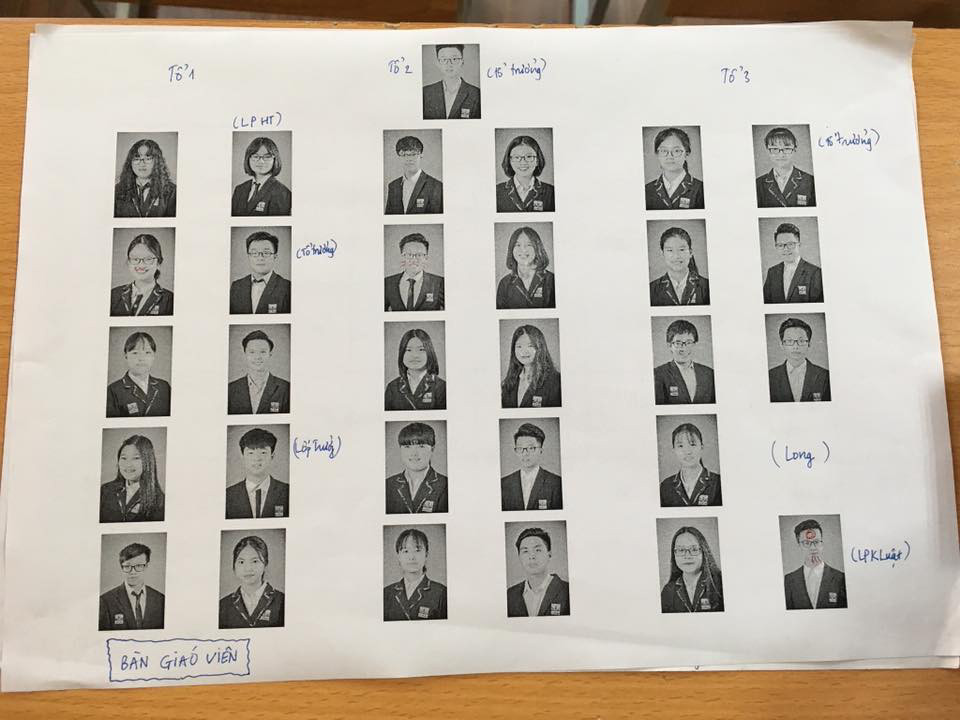 Tổ 1
Tổ 2
(tổ trưởng)
Tổ 3
(LPHT)
(tổ trưởng)
(tổ trưởng)
(Lớp Trưởng)
(Long)
(LPKLuật)
BÀN GIÁO VIÊN